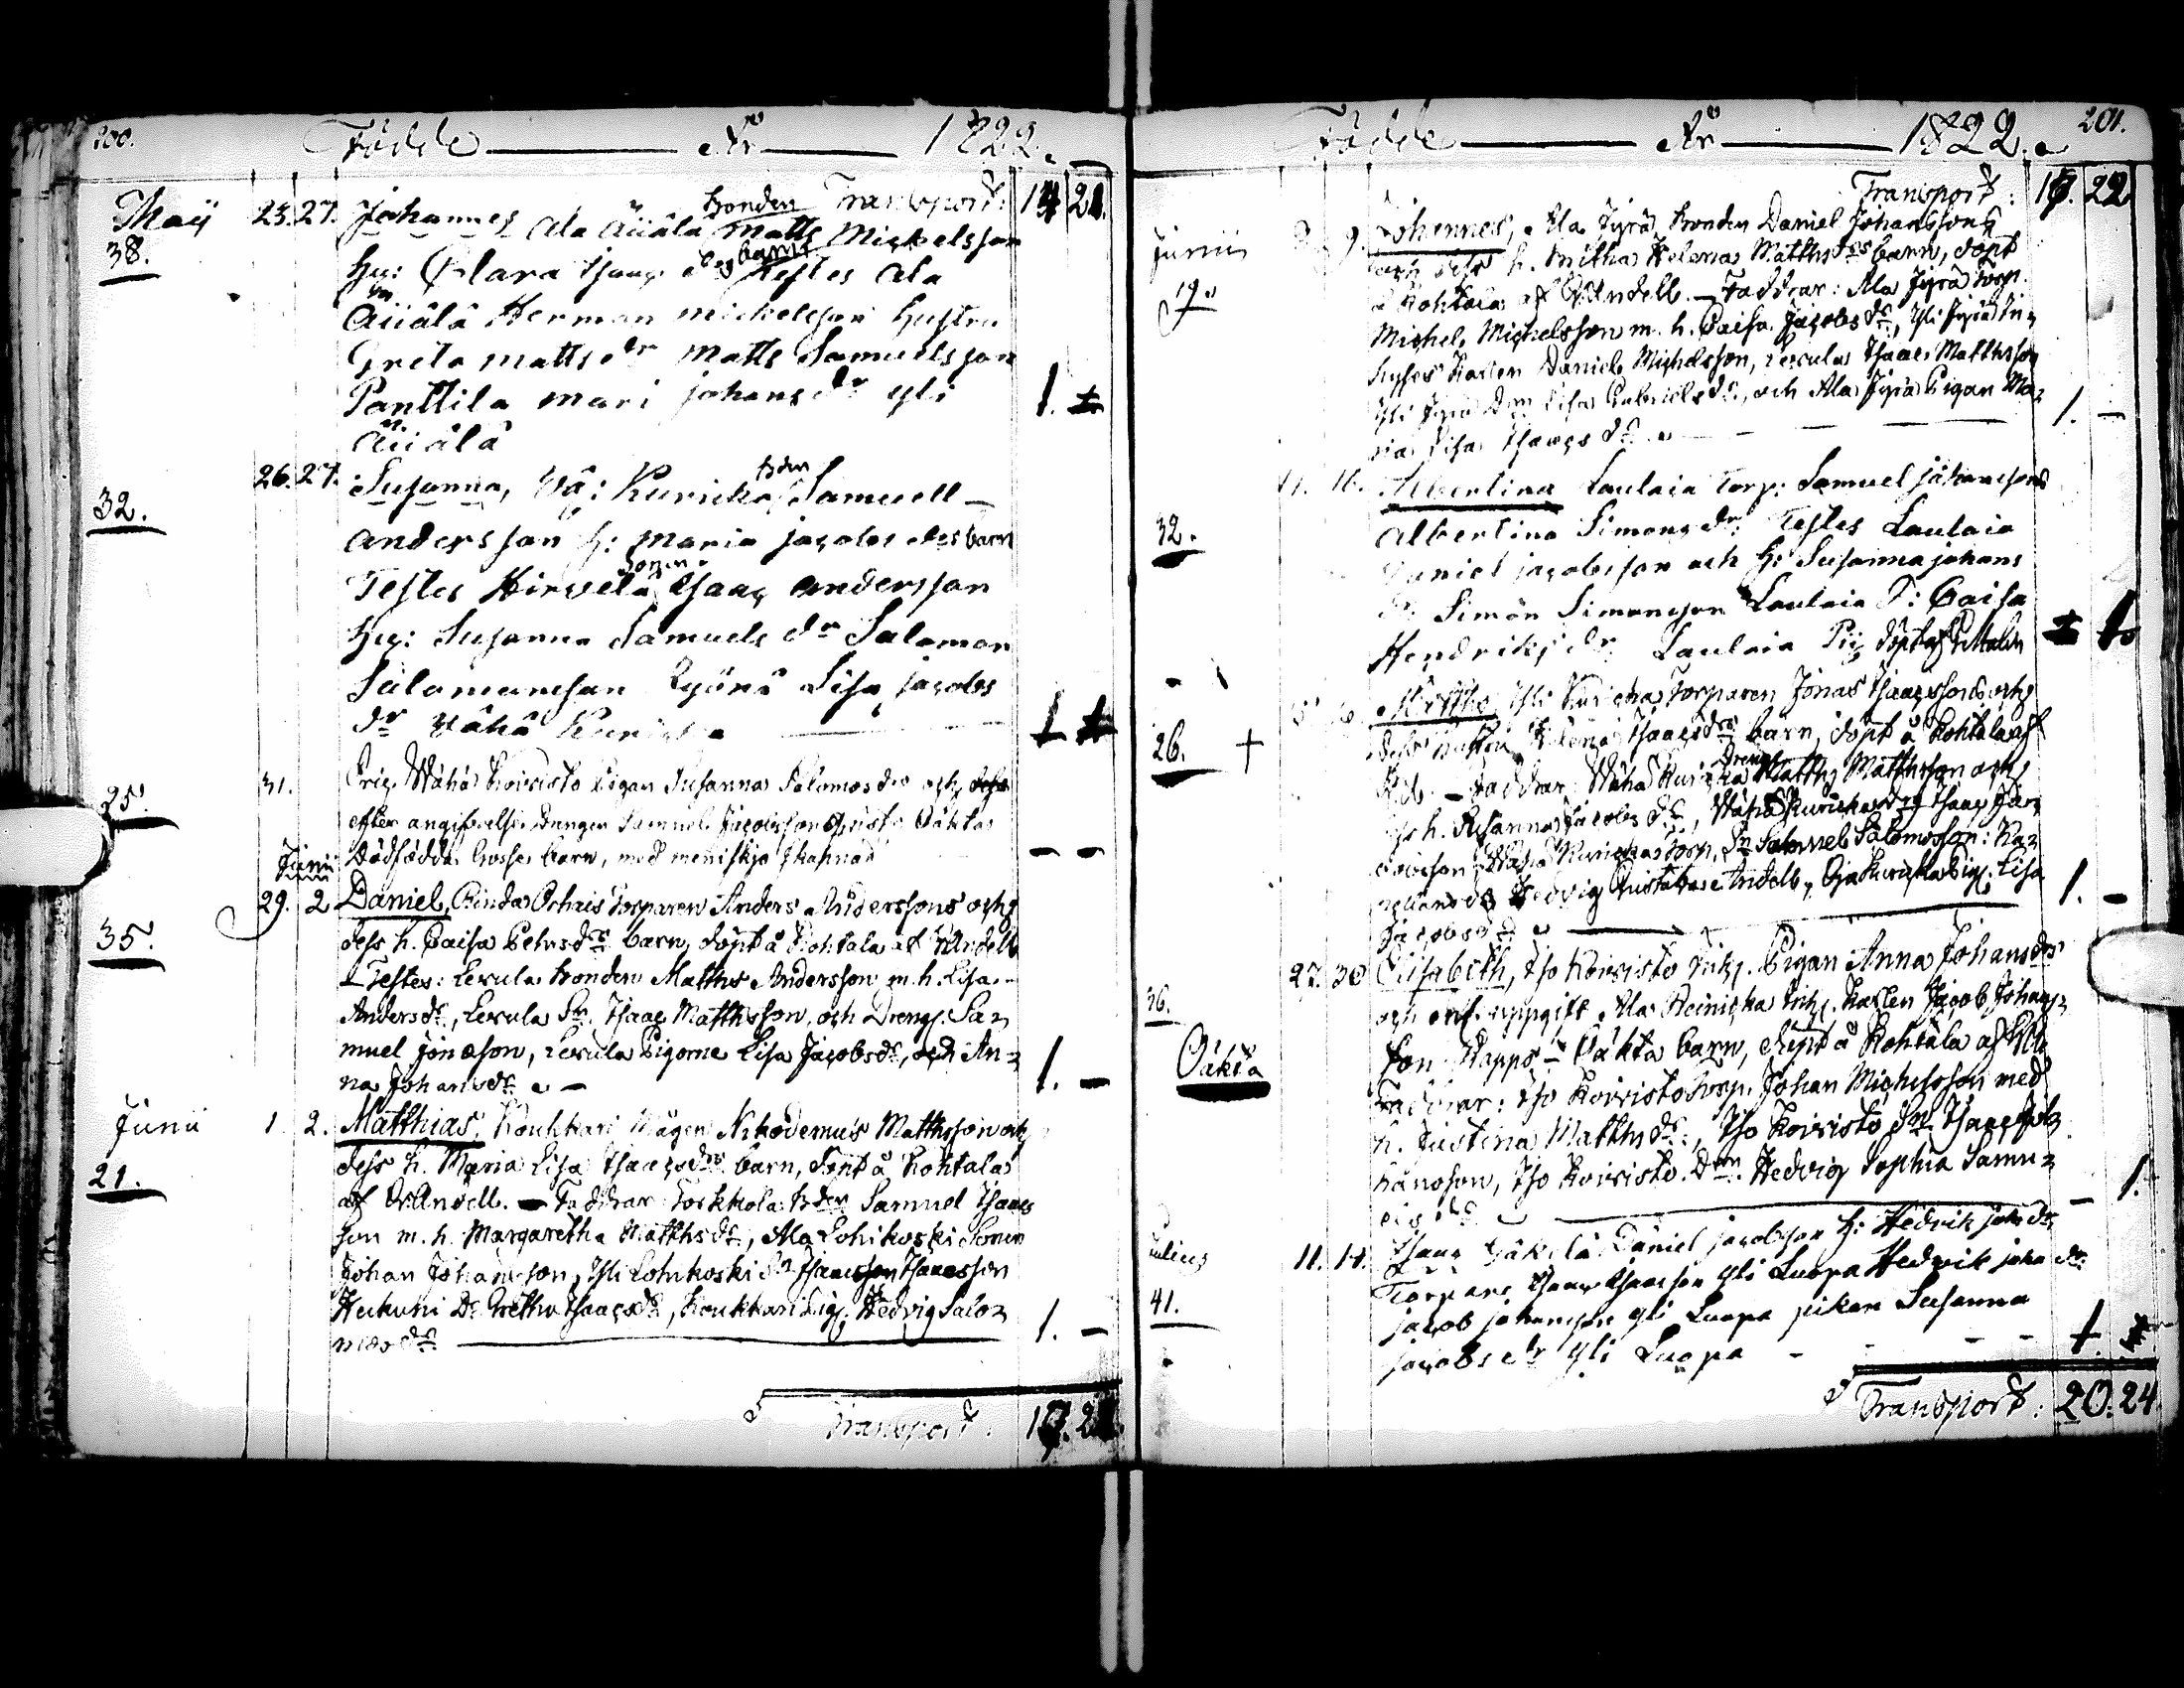 200.
Födde År 1822.
Transport: 14 21.
Maij 23. 27. Johannes Ala Äiiälä bonden Matts Mickelsson
38.
Hu: Clara Isaacs drs barn Testes Ala
Äiiälä Herman Mickelsson hustru
Greta Mattsdr Matts Samuelsson
Panttila Mari Johansdr Yli 1.
Äiiälä
26. 27. Susanna, Wä: Kuricka bden Samuell
32.
Andersson h: Maria Jacobs drs barn
Testes Hirvelä Sonen Isaac Andersson
Hu: Susanna Samuels dr Salomon
Salomonsson Lisa Jacobs
dr Vähä Kuricka
31. Wähä Koivisto Pigan Susanna Salomos drs och
25.
efter angifvelse Drengen Samuel Jacobsson
Dödfödda Gosse barn, med meniskjo skapnad - -
Junii
29. 2 Daniel, Torparen Anders Anderssons och
35.
dess h. Caisa barn, döpt å Kohtala af Andell
Testes: Lerula Bonden Matths Andersson m. h. Lisa
Anders dr, Lerula Sn. Isaac Matthsson, och Dreng. Sa=
muel Jonasson, Lerula Pigorne Lisa Jacobsdr, och An= 1. -
na Johansdr
Junii 1. 2. Matthias, Koukkari Mågen Nikodemus Matthsson och
21.
dess h. Maria Lisa Isaacs drs barn, döpt å Kohtala
af Andell. - Faddrar: Torkkola Bden Samuel Isaacs
son m. h. Margaretha Matthsdr, Ala Lohikoski Sonen
Johan Johansson, Yli Lohikoski Sn Isaacsson
Dr. Gretha Isaacsdr, Koukkari Pig. Hedvig Salo= 1. -
mosdr
Transport: 17. 21.
201.
Födde År 1822.
Transport: 17. 22
Junii 9. Johannes, Ala Jyrä Bonden Daniel Johanssons
19.
och dess h. Helena Matths drs barn, döpt
å Kohtala af Andell. - Faddrar: Ala Jyrä Torp.
Michel Michelsson m. h. Caisa Jacobs dr, Yli Jyrä In=
hyses Karlen Daniel Michelsson, Lerula Isaac Matthsson
Yli Jyrä Dtn Lisa Gabrielsdr, och Ala Jyrä Pigan Ma= 1. -
ria Lisa Isaacs dr
11. 16. Albertina Laulaia Torp: Samuel Johanssons
32.
Albertina Simons dr. Testes Laulaia
Daniel Jacobsson och h: Susanna Johans
dr Simon Simonsson Laulaia D: Caisa
Hendriks dr Laulaia Pig döpt af
Yli Kuricka Torparen Jonas Isaacssons och
26. +
dess hustru Helena Isaacs drs barn, döpt å Kohtala af
- Faddrar: Wähä Kuricka Dreng Matths Matthsson och
h. Susanna Jacobs dr, Wähä Kuricka
Wähä Kuricka Torp. Sn Samuel Salomosson: Ka=
Hedvig Andell, Kuricka Pig. Lisa 1. -
Jacobs dr
27. 30 Elisabeth, Iso Koivisto Inh. Pigan Anna Johans drs
36.
och enl. uppgift Ala Reinicka Inh. Karlen Jacob Johans=
Oåkta
son Oäkta barn, döpt å Kohtala af
Faddrar: Iso Koivisto Torp. Johan Michelsson med
h. Justina Matths dr, Iso Koivisto Sn. Isaac Jo=
hansson, Iso Koivisto Dtn. Hedvig Sophia Samu= - 1.
els dr
Julius 11. 14. Isaac Daniel Jacobsson h: Hedvik Joh dr
41.
Torpare Isaac Isaacson Yli Luopa Hedvik Joha dr
Jacob Johansson Yli Luopa pikan Susanna
Jacobs dr Yli Luopa
Transport: 20. 24.